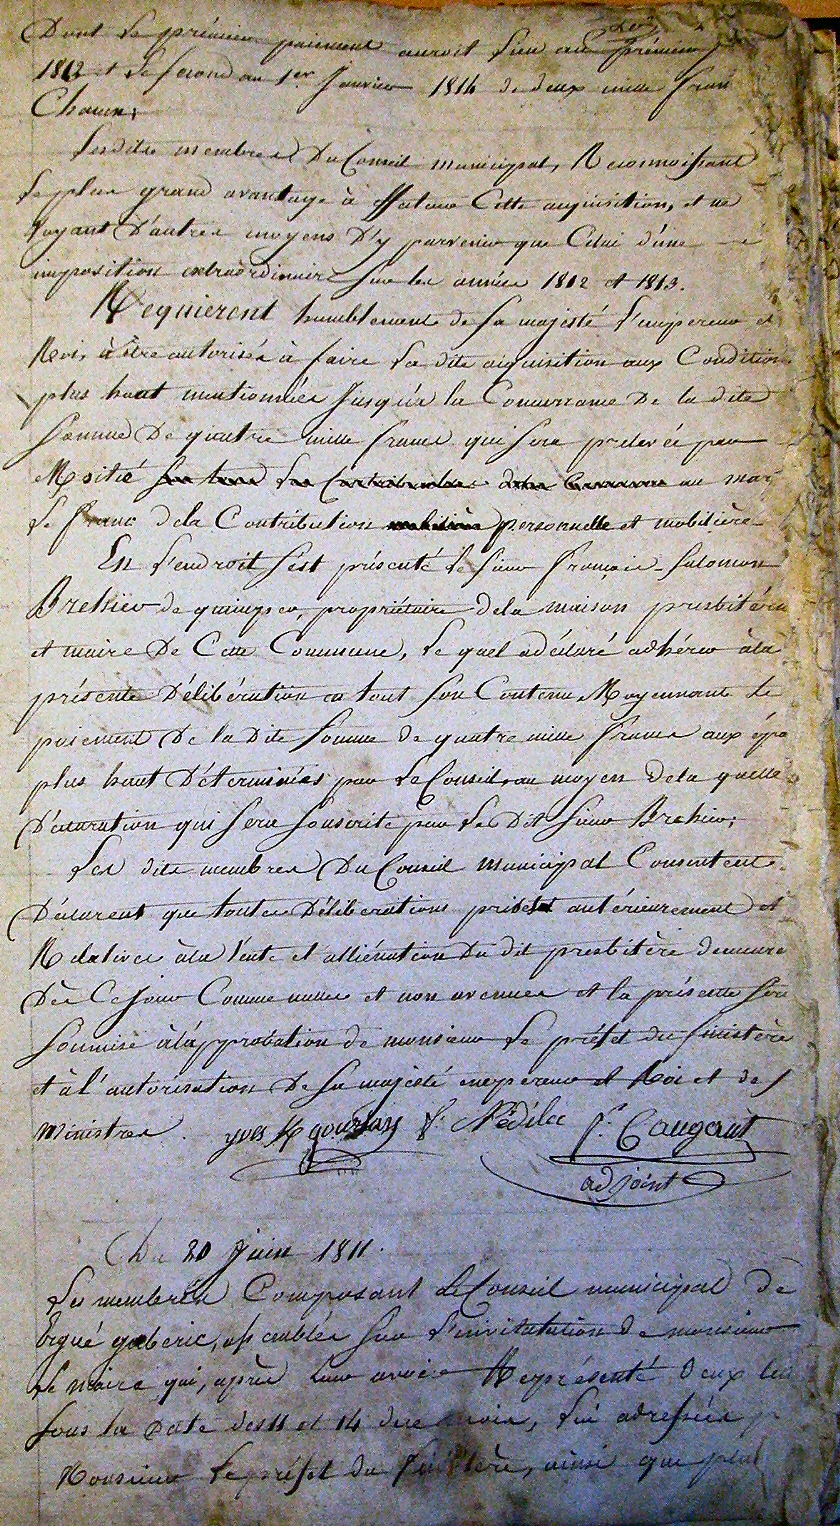 Dont le prémier paiement auroit lieu au prémier
1812 et le second au 1er Janvier 1814 de deux mille fran
Chacun;
Lesdits membres Du Conseil municipal, Reconnoissant
le plus grand avantage à faire Cette acquisition, et ne
voyant D'autres moyens D'y parvenir que Celui d'une
imposition extraordinaire sur les années 1812 et 1813.
Requièrent humblement de sa majesté l'empereur et
Roi, à être autorisés à faire la dite acquisition aux Condition
plus haut mentionnées jusqu'à la Concurrance De la dite
somme De quatre mille francs qui sera prélevée par
Moitié sur tous les Contribuables au mar
le franc dela Contribution mobilière personnelle et mobilière
En l'endroit s'est présenté le sieur françois-Salomon
Brehier de quimper, propriétaire dela maison presbitéra
et maire De Cette Commune, le quel a déclaré adhérer àla
présente Délibération en tout son Contenu Moyennant le
paiement De la Dite somme de quatre mille francs aux épo
plus haut Déterminées par le Conseil, au moyen dela quelle
Déclaration qui sera souscrite par le Dit sieur Brehier;
Les dits membres Du Conseil municipal Consentent
Déclarent que toutes Délibérations prises antérieurement et
Relatives àla Vente et alliénation du dit presbitère demeure
Dès Ce jour Comme nulles et non avenues et la présente sera
soumise àl'approbation de monsieur le préfet du finistère
et à l'autorisation De sa majesté empereur et Roi et de s
Ministres. yves gourlay f. Nédélec f. Caugant
adjoint
Du 20 Juin 1811.
Les membres Composant le Conseil municipal de
Ergué gaberic, assemblés sur l'invitation de monsieur
le maire qui, après leur avoir Représenté deux let
sous la Date des 11 et 14 du mois, lui adressées p
Monsieur le préfet du finistère, ainsi que